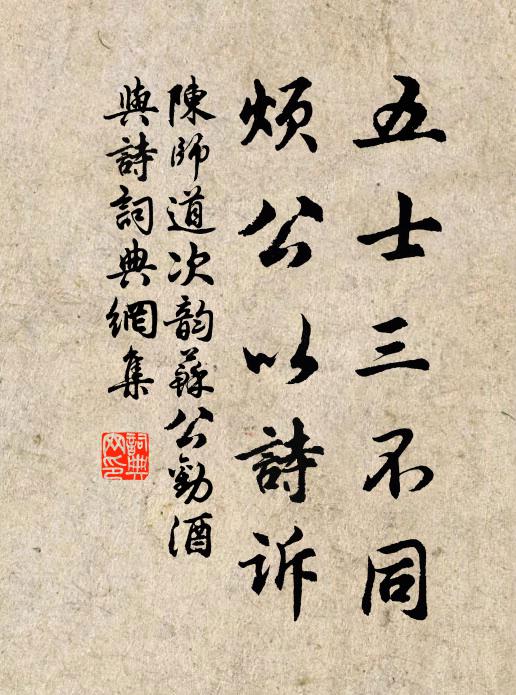 五士三不同
煩公以詩訴
陳師道次韵蘇公勸酒
與詩詞典網集
詞典
网印